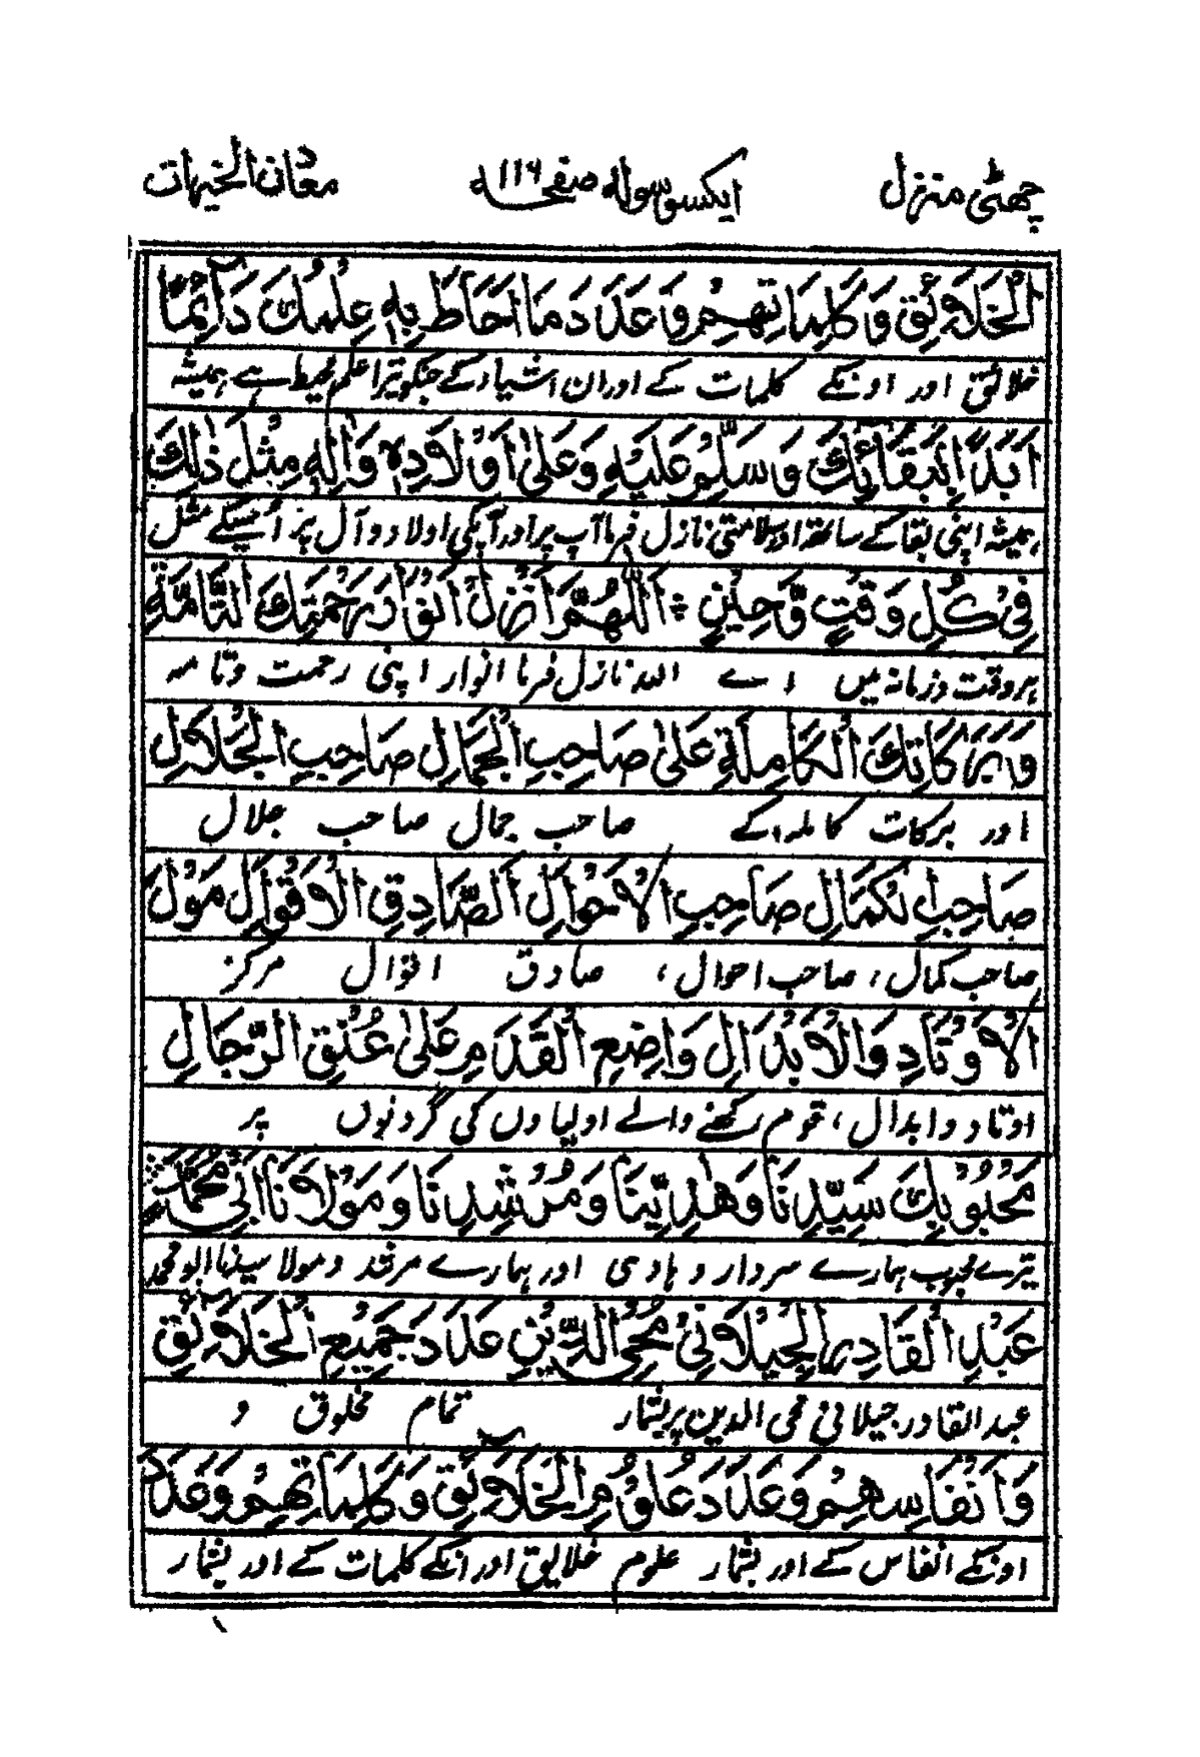 چھٹی منزل ایکسو سولہ صفحہ ۱۱۶ معدن الخیرات
الْخَلَائِقِ وَكَلِمَاتِهِمْ وَعَدَدَ مَا اَحَاطَ بِهٖ عِلْمُكَ دَآئِمًا
خلائق اور اونکے کلمات کے اور ان اشیاء کے جنکو تیرا علم محیط ہے ہمیشہ
اَبَدًا بِبَقَائِكَ وَسَلِّمْ عَلَيْهِ وَعَلٰى اَوْلَادِهٖ وَاٰلِهٖ مِثْلَ ذٰلِكَ
ہمیشہ اپنی بقا کے ساتھ اور سلامتی نازل فرما آپ پر اور آپکی اولاد و آل پر اسیکے مثل
فِيْ كُلِّ وَقْتٍ وَّحِيْنٍ ÷ اَللّٰهُمَّ اَنْزِلْ اَنْوَارَ رَحْمَتِكَ التَّامَّةِ
ہر وقت و زمانہ میں ، اے اللہ نازل فرما انوار اپنی رحمت و تامہ
وَبَرَكَاتِكَ الْكَامِلَةِ عَلٰى صَاحِبِ الْجَمَالِ صَاحِبِ الْجَلَالِ
اور برکات کاملہ کے صاحب جمال صاحب جلال
صَاحِبِ الْكَمَالِ صَاحِبِ الْاَحْوَالِ الصَّادِقِ الْاَقْوَالِ مَوْلَ
صاحب کمال، صاحب احوال، صادق اقوال مرکز
الْاَوْتَادِ وَالْاَبْدَالِ وَاضِعِ الْقَدَمِ عَلٰى عُنُقِ الرِّجَالِ
اوتاد و ابدال، قدم رکھنے والے اولیاوں کی گردنوں پر
مَحْبُوْبِكَ سَيِّدِنَا وَهَادِيْنَا وَمُرْشِدِنَا وَمَوْلَانَا اَبِيْ مُحَمَّدٍ
تیرے محبوب ہمارے سردار و ہادی اور ہمارے مرشد و مولا سیدنا ابو محمد
عَبْدِ الْقَادِرِ الْجِيْلَانِيْ مُحْيِ الدِّيْنِ عَدَدَ جَمِيْعِ الْخَلَائِقِ
عبد القادر جیلانی محی الدین پر بشمار تمام مخلوق و
وَاَنْفَاسِهِمْ وَعَدَدَ عُلُوْمِ الْخَلَائِقِ وَكَلِمَاتِهِمْ وَعَدَدَ
اونکے انفاس کے اور بشمار علوم خلایق اور انکے کلمات کے اور بشمار